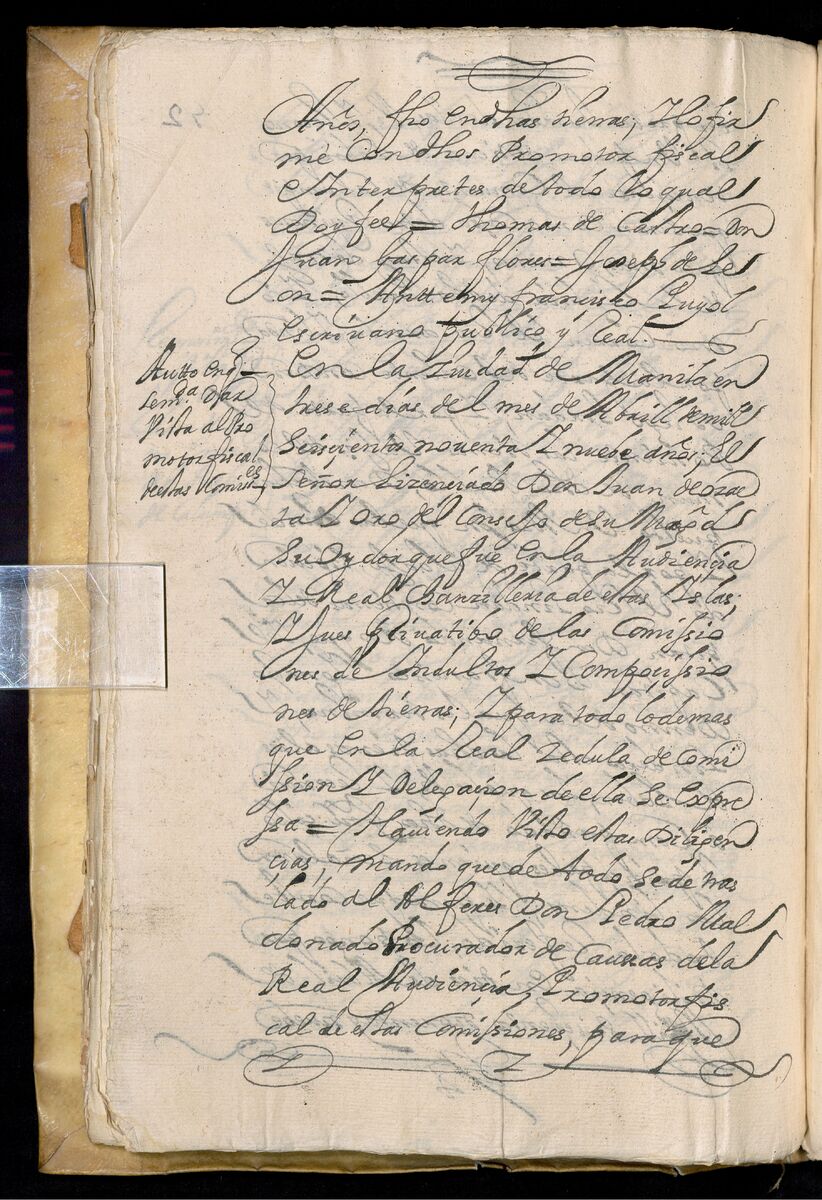 Años, fho en dhas tierras, Y lo fir
mè Con dhos Promotor fiscal
e Interpretes de todo lo qual
Doy feè = thomas de Castro = Don
Juan Gaspar flores = Joseph de Le
on = Antte my francisco Puyol
escriuano publico y Real.
Autto en q̃
se m.da Dar
Vista al Pro
motor fiscal
de estas Comiss.es
En la Ziudad de Manila en
trese dias del mes de Abrill de mill
Seisçientos nouenta Y nuebe años; El
Señor Lizenciado Don Juan de oza
ta Y oro del Consejo de su Magd
Su Oydor que fue En la Audiençia
Y Real Chanzilleria de estas Yslas;
Y Jues priuatibo de las Comissio
nes de Indultos Y Composissio
nes de tierras; Y para todo lo demas
que En la Real zedula de Comi
ssion Y Delegaçion de ella Se Expre
ssa = Hauiendo Visto estas Diligen
çias, mando que de todo se dè tras
lado al Alferes Don Pedro Mal
donado Procurador de Caussas de la
Real Audiençia, Promotor fis
cal de estas Comissiones, para que